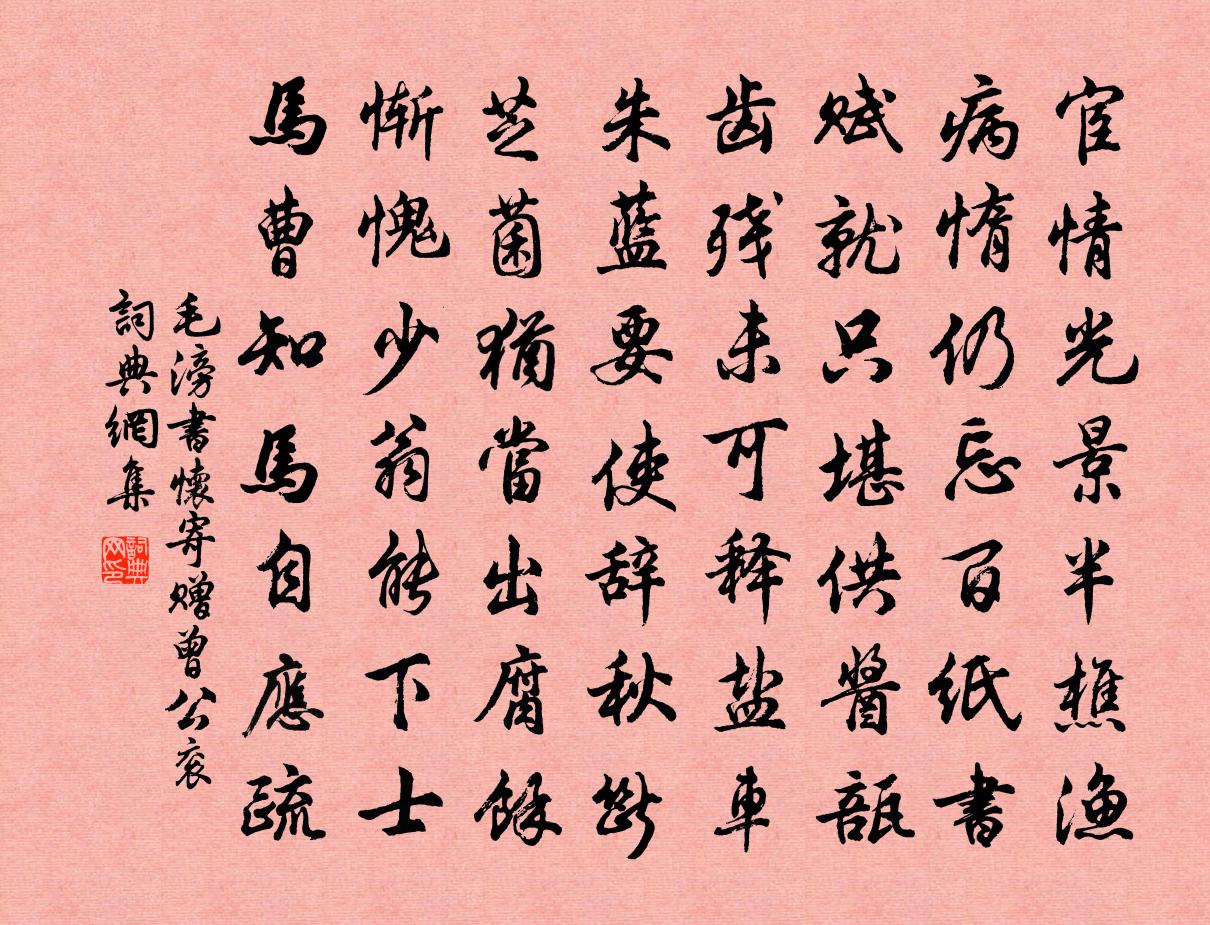 宦情光景半樵漁
病惰仍忘百紙書
賦就只堪供醬瓿
齿残未可释盐車
朱藍要使辞秋斝
芝菌猶當出腐餘
慚愧少翁能下士
馬曹知馬自應疏
毛滂書懷寄赠曾公衮
詞典網集
詞典网印